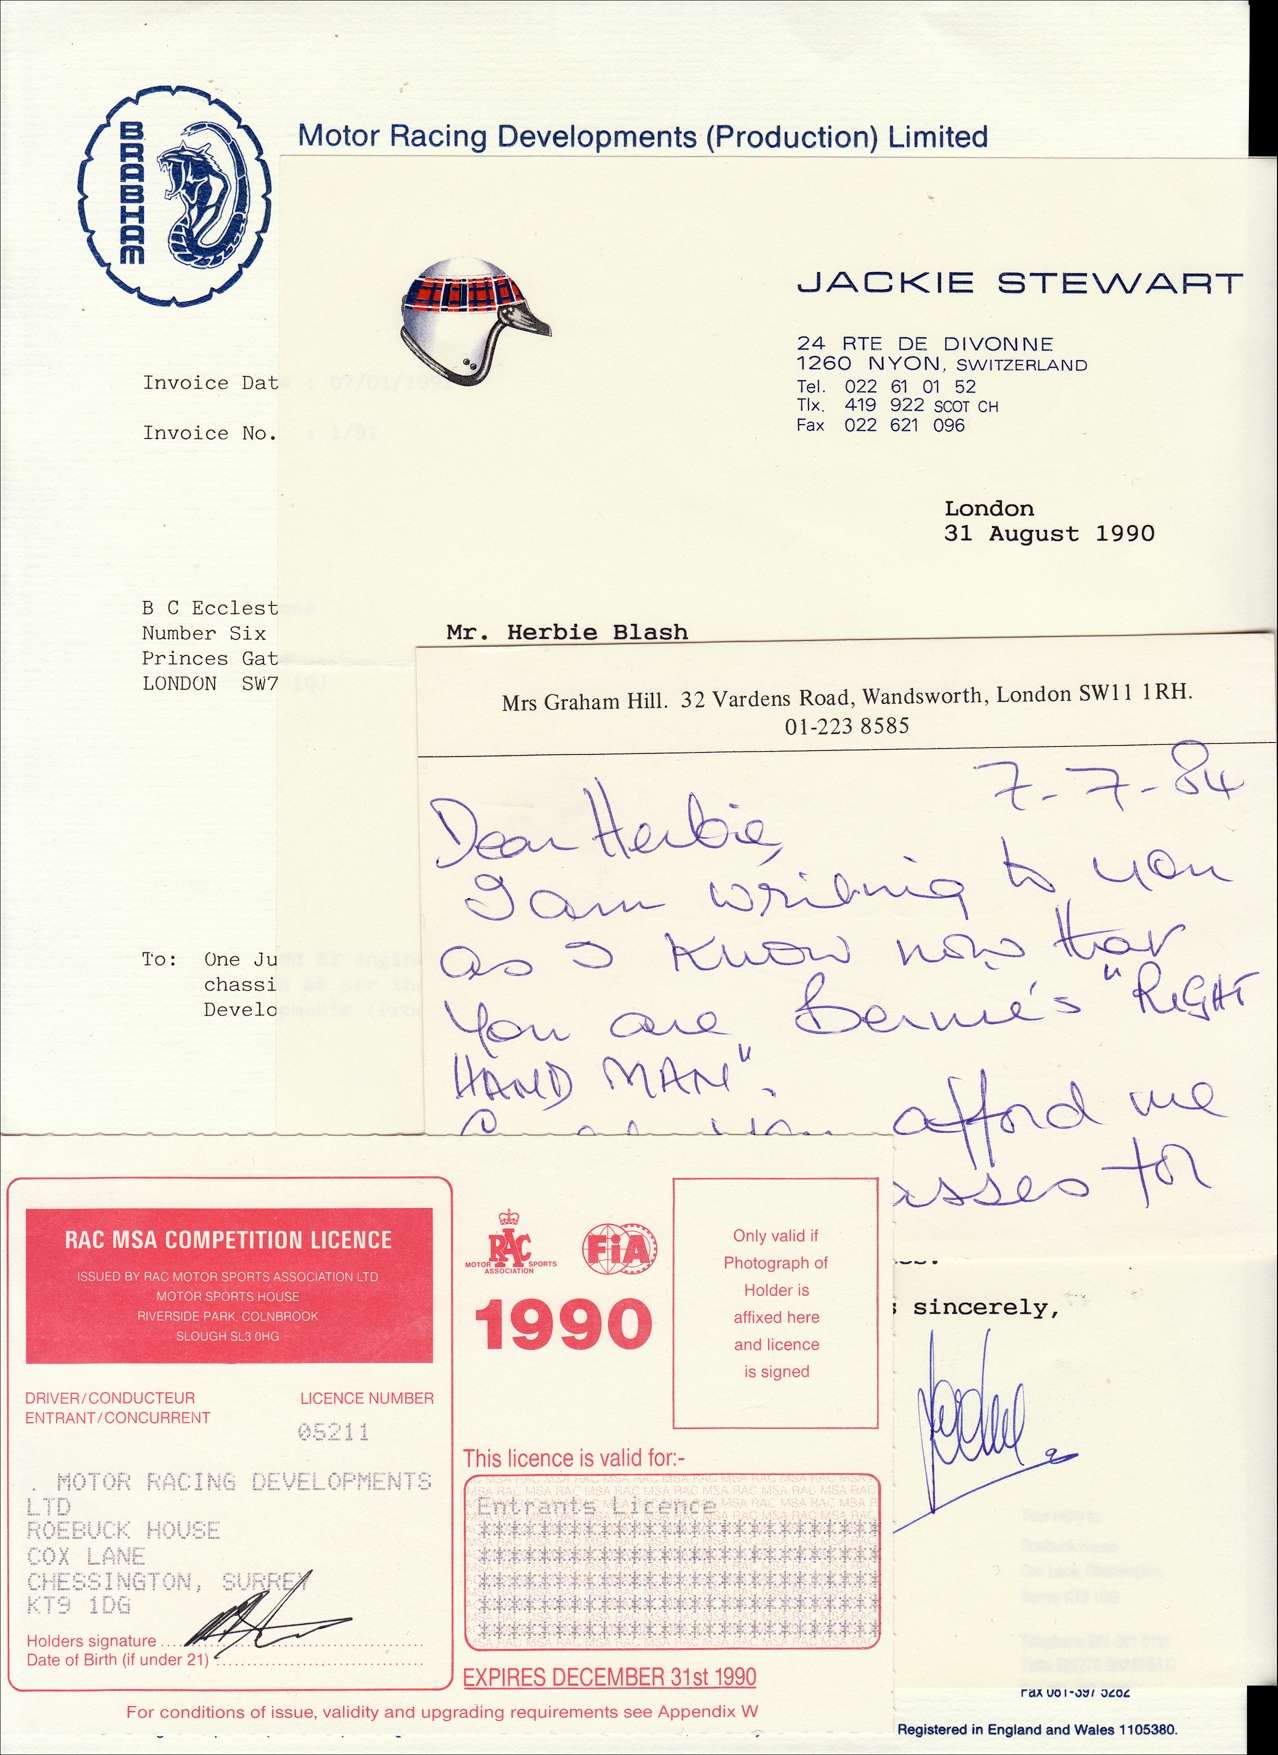 BRABHAM
Motor Racing Developments (Production) Limited
Invoice Date : 07/01/199
Invoice No. : 1/91
B C Ecclestone
Number Six
Princes Gat
LONDON SW7 1QJ
To: One Ju
chassi
Develo
JACKIE STEWART
24 RTE DE DIVONNE
1260 NYON, SWITZERLAND
Tel. 022 61 01 52
Tlx. 419 922 SCOT CH
Fax 022 621 096
London
31 August 1990
Mr. Herbie Blash
Mrs Graham Hill. 32 Vardens Road, Wandsworth, London SW11 1RH.
01-223 8585
7-7-84
Dear Herbie,
I am writing to you
as I know now that
you are Bernie's "RIGHT
HAND MAN".
you afford me
asses for
sincerely,
RAC MSA COMPETITION LICENCE
ISSUED BY RAC MOTOR SPORTS ASSOCIATION LTD
MOTOR SPORTS HOUSE
RIVERSIDE PARK, COLNBROOK
SLOUGH SL3 0HG
DRIVER/CONDUCTEUR
ENTRANT/CONCURRENT
LICENCE NUMBER
05211
. MOTOR RACING DEVELOPMENTS
LTD
ROEBUCK HOUSE
COX LANE
CHESSINGTON, SURREY
KT9 1DG
Holders signature
Date of Birth (if under 21)
RAC
MOTOR SPORTS
ASSOCIATION
FiA
1990
Only valid if
Photograph of
Holder is
affixed here
and licence
is signed
This licence is valid for:-
Entrants Licence
EXPIRES DECEMBER 31st 1990
For conditions of issue, validity and upgrading requirements see Appendix W
Fax 081-397 5282
Registered in England and Wales 1105380.